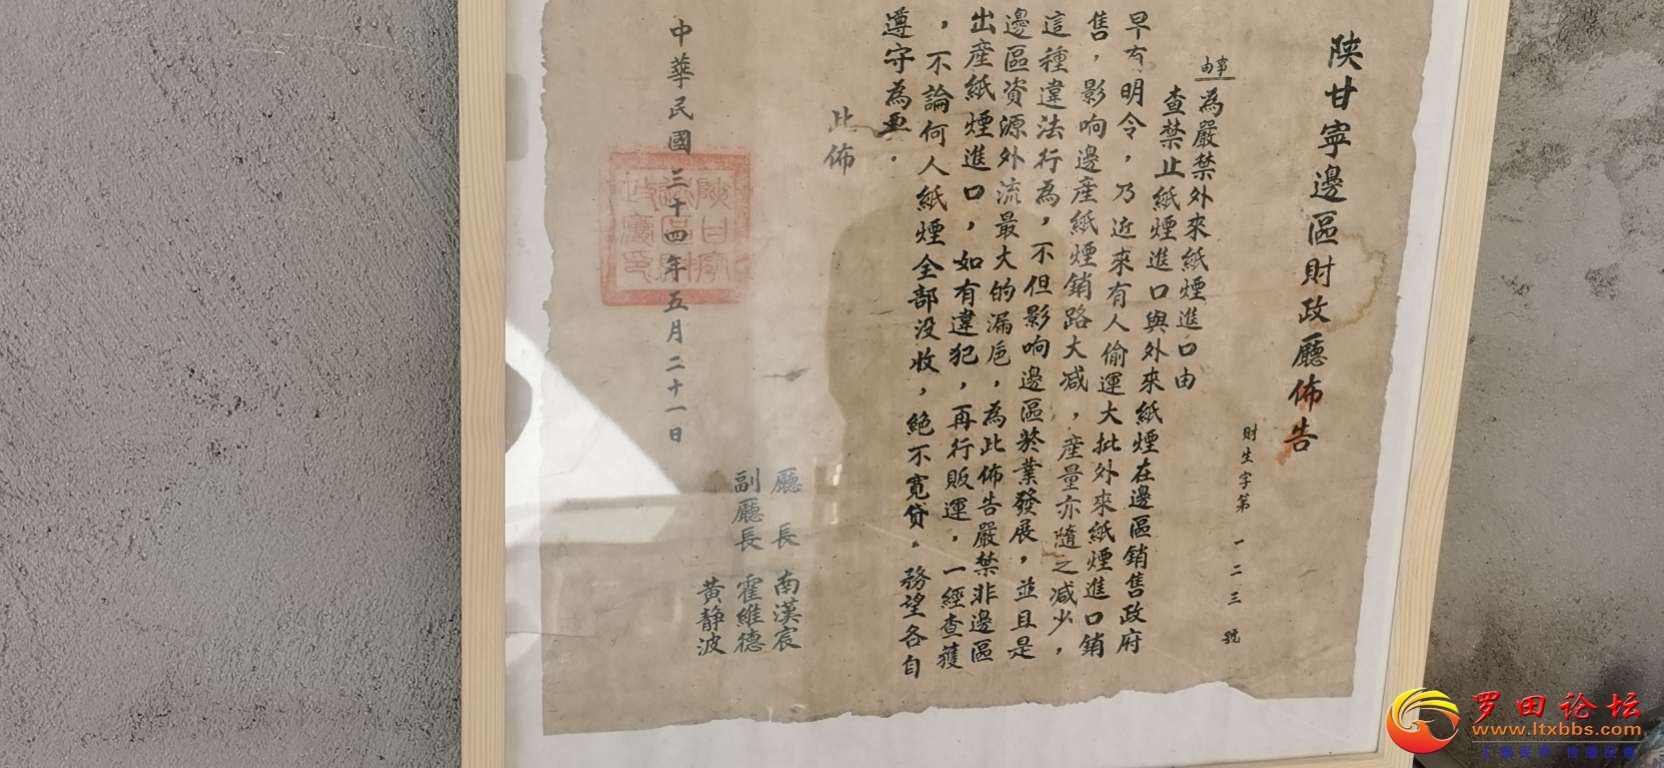 陝甘寧邊區財政廳佈告
財生字第一二三號
事由
為嚴禁外來紙煙進口由
查禁止紙煙進口與外來紙煙在邊區銷售政府
早有明令，乃近來有人偷運大批外來紙煙進口銷
售，影响邊產紙煙銷路大減，產量亦隨之減少，
這種違法行為，不但影响邊區菸業發展，並且是
邊區資源外流最大的漏巵，為此佈告嚴禁非邊區
出產紙煙進口，如有違犯，再行販運，一經查獲
，不論何人紙煙全部没收，絕不寬貸。務望各自
遵守為要．
此佈
廳長 南漢宸
副廳長 霍維德
黃静波
中華民國三十四年五月二十一日
罗田论坛
www.ltxbbs.com